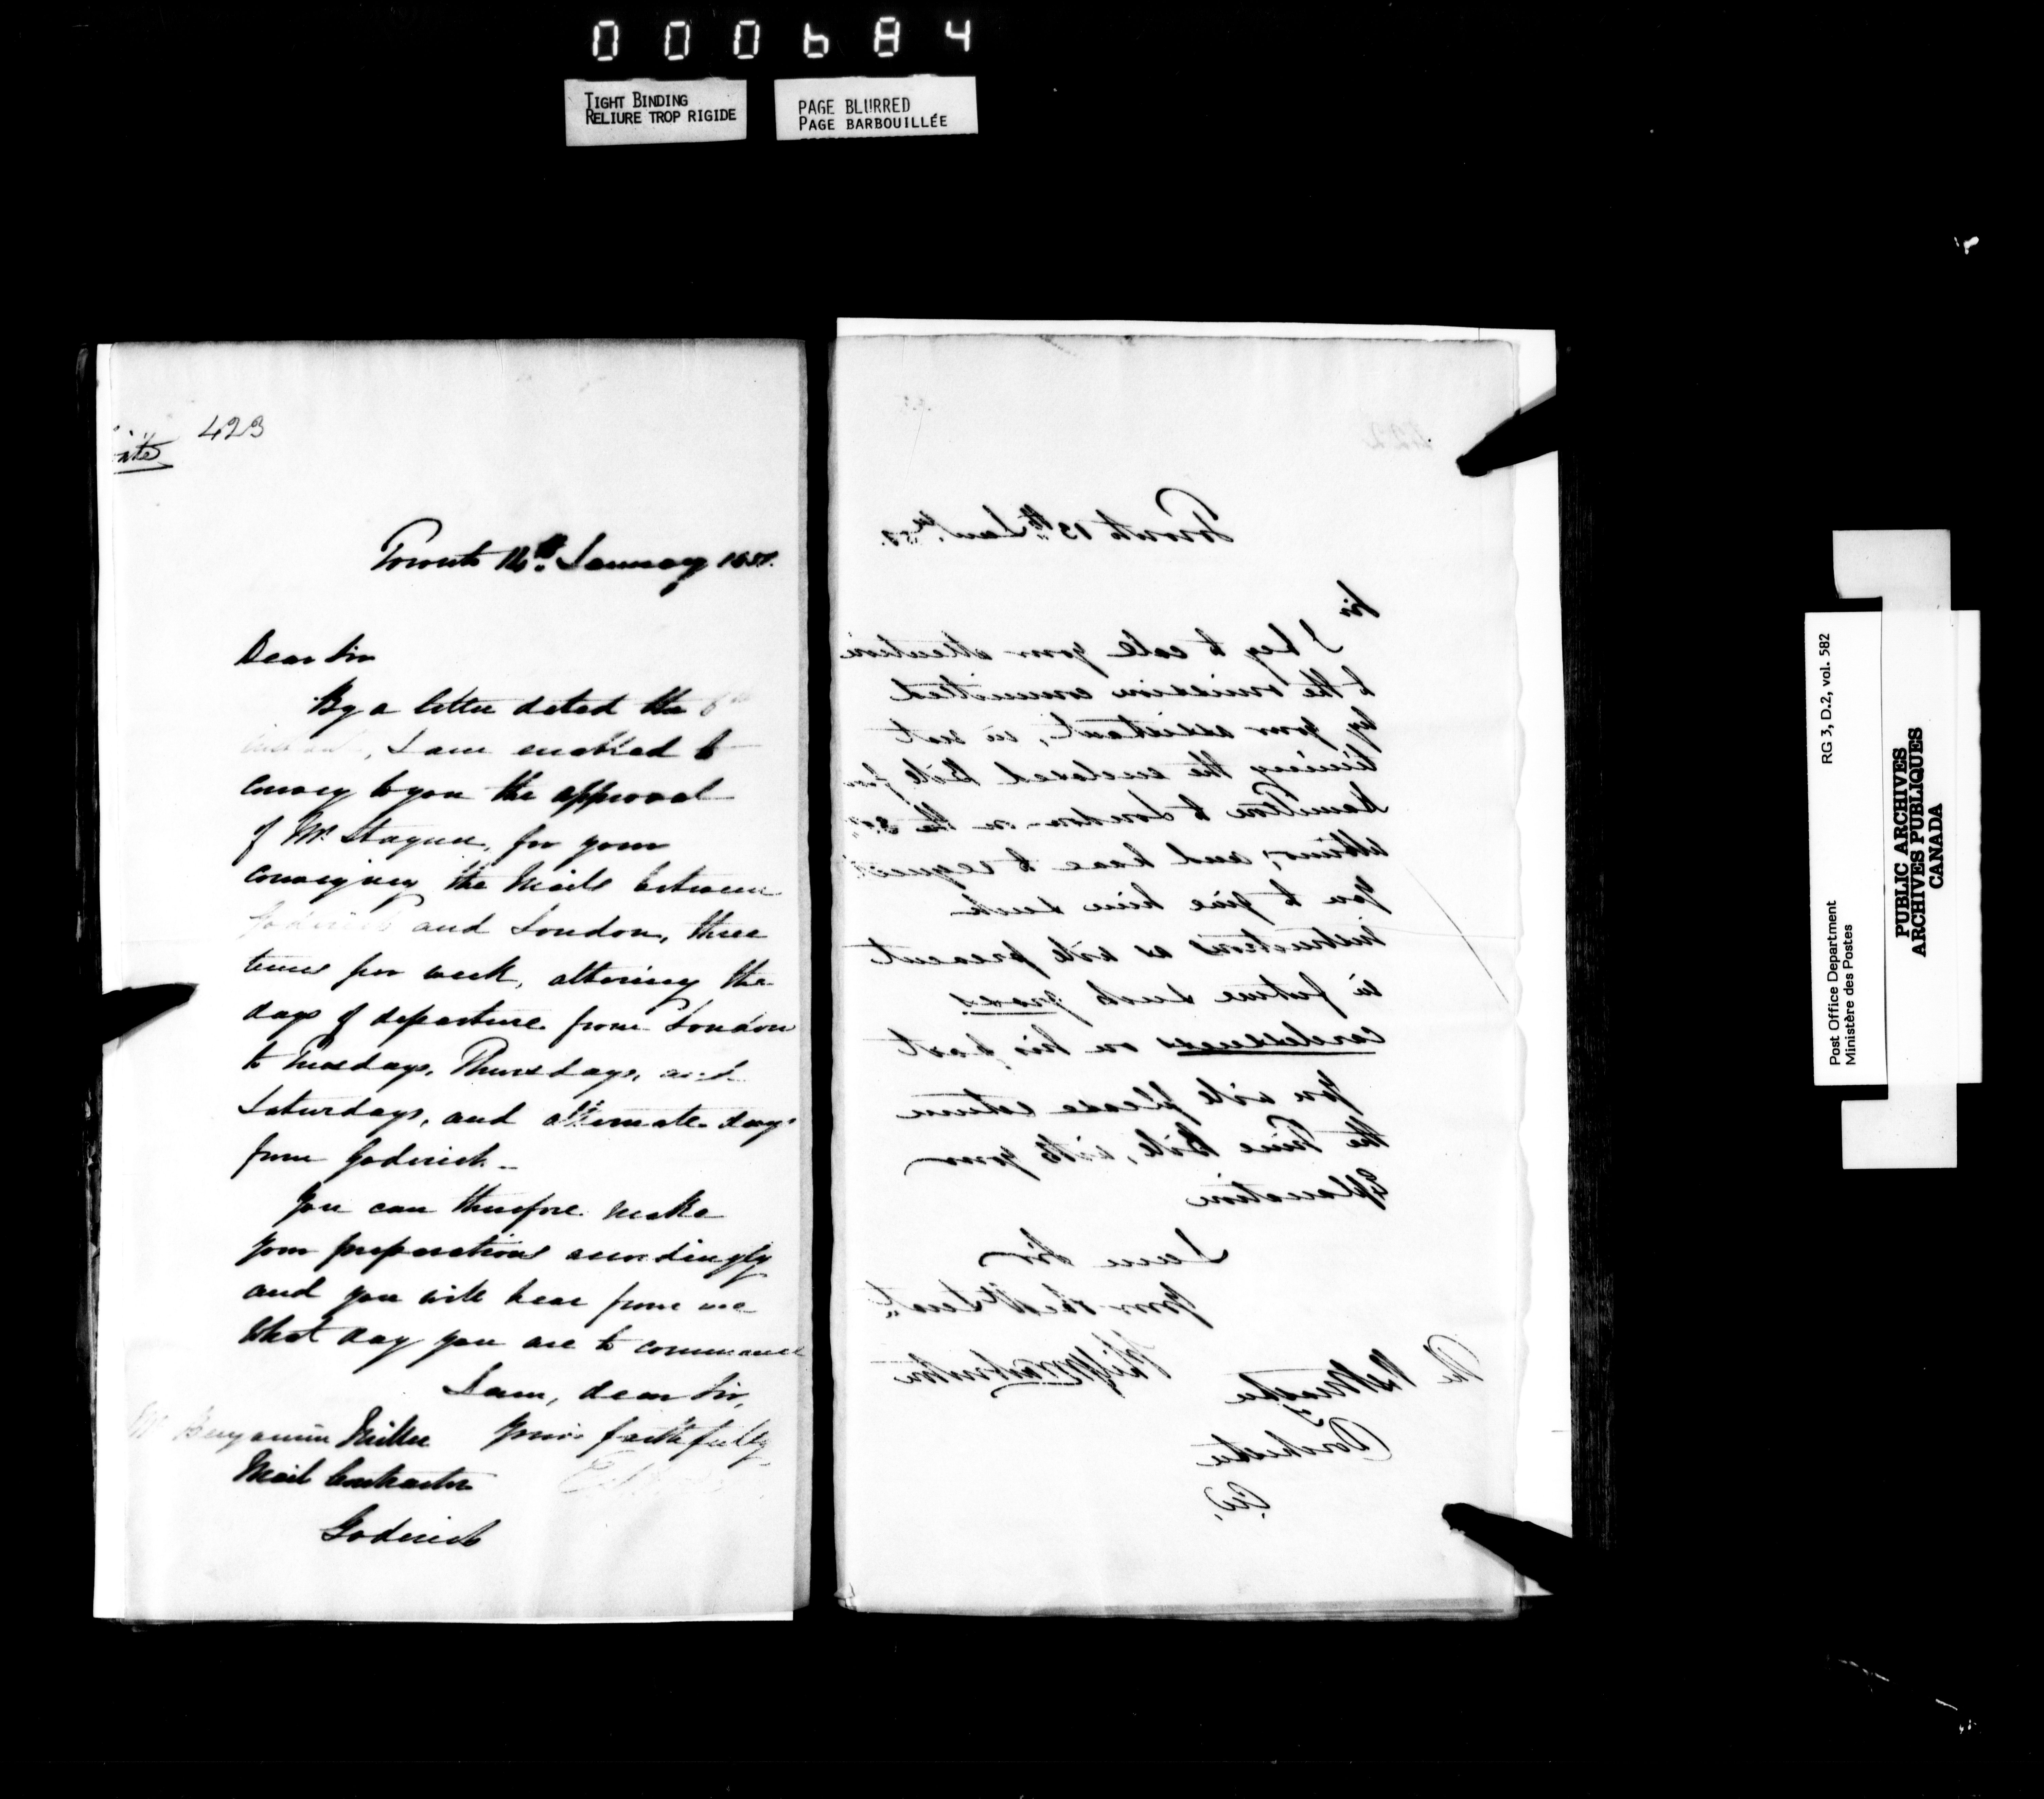 000684
TIGHT BINDING
RELIURE TROP RIGIDE
PAGE BLURRED
PAGE BARBOUILLÉE
423
Toronto 14th January 185
Dear Sir
By a letter dated the 6th
instant, I am enabled to
convey to you the approval
of Mr Stayner, for your
conveying the Mails between
Goderich and London, three
times per week, altering the
days of departure from London
to Tuesdays, Thursdays, and
Saturdays, and alternate days
from Goderich.
You can therefore make
your preparations accordingly
and you will hear from me
what day you are to commence
I am, dear Sir,
Mr Benjamin Miller Yours faithfully
Mail Contractor
Goderich
422
Toronto 13th Jany
Sir
I beg to call your attention
to the omission committed
by your assistant, in not
timing the enclosed Bill from
Hamilton to London on the
ultimo, and have to request
you to give him such
instructions as will prevent
in future such gross
carelessness on his part
You will please return
the Time Bill, with your
Explanation
I am Sir
Your obedt Servt
The Postmaster
Dorchester
C.W.
RG 3, D.2, vol. 582
Post Office Department
Ministère des Postes
PUBLIC ARCHIVES
ARCHIVES PUBLIQUES
CANADA